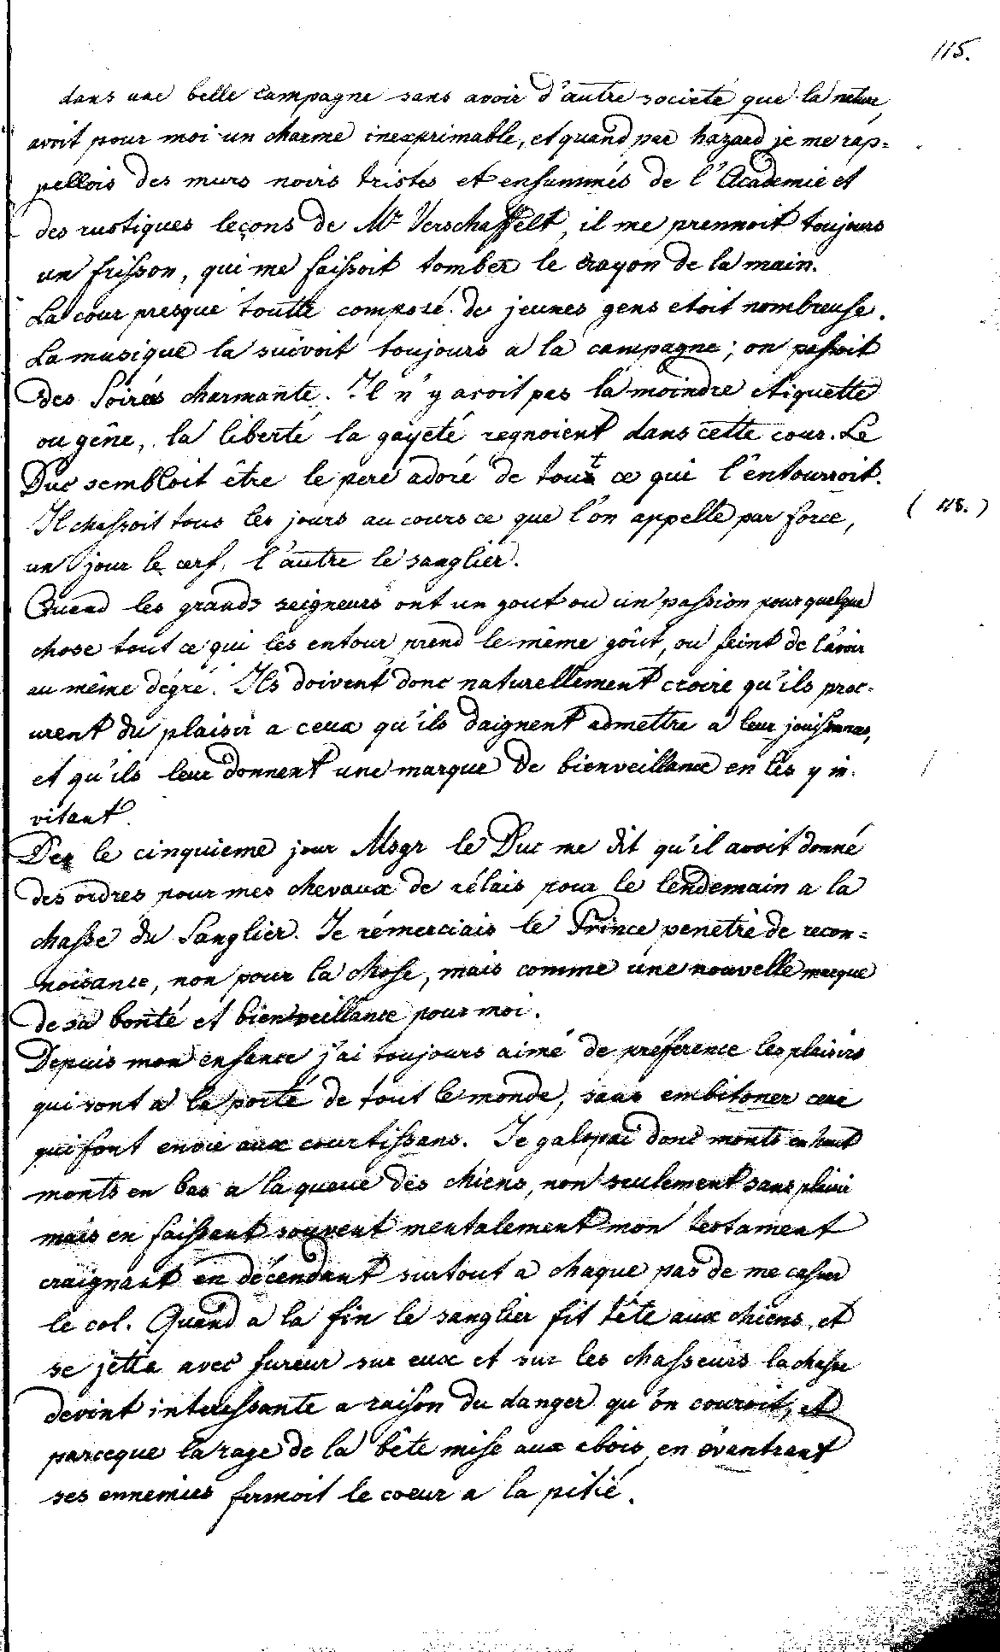 115.
dans une belle campagne sans avoir d'autre societé que la nature
avoit pour moi un charme inexprimable, et quand par hazard je me rap=
pellois des murs noirs tristes et enfummés de l'Academie et
des rustiques leçons de Mr Verschaffelt, il me prennoit toujours
un frisson, qui me faissoit tomber le crayon de la main.
La cour presque toutte composé de jeunes gens etoit nombreuse.
La musique la suivoit toujours a la campagne; on passoit
des Soirés charmante. Il n'y avoit pas la moindre etiquette
ou gêne, la liberté la gayeté regnoient dans cette cour. Le
Duc sembloit être le pere adoré de tout ce qui l'entourroit.
Il chassoit tous les jours au cours ce que l'on appelle par force,
(118.)
un jour le cerf, l'autre le sanglier.
Quand les grands seigneurs ont un gout ou un passion pour quelque
chose tout ce qui les entour prend le même goût, ou feint de l'avoir
au même dégré. Ils doivent donc naturellement croire qu'ils proc=
urent du plaisir a ceux qu'ils daignent admettre a leur jouissances,
et qu'ils leur donnent une marque de bienveillance en les y in=
vitant.
Des le cinquieme jour Msgr le Duc me dit qu'il avoit donné
des ordres pour mes chevaux de rélais pour le lendemain a la
chasse du Sanglier. Je rémerciais le Prince penetré de recon=
noisance, non pour la chose, mais comme une nouvelle marque
de sa bonté et bienveillance pour moi.
Depuis mon enfance j'ai toujours aimé de préference les plaisirs
qui sont a la porté de tout le monde, sans embitoner ceux
qui font envie aux courtissans. Je galopai donc monts en haut
monts en bas a la queue des chiens, non seulement sans plaisir
mais en faissant souvent mentalement mon testament
craignant en décendant surtout a chaque pas de me casser
le col. Quand a la fin le sanglier fit tête aux chiens, et
se jetta avec fureur sur eux et sur les chasseurs la chasse
devint interessante a raison du danger qu'on couroit, et
parceque la rage de la bête mise aux abois, en éventrant
ses ennemies fermoit le coeur a la pitié.